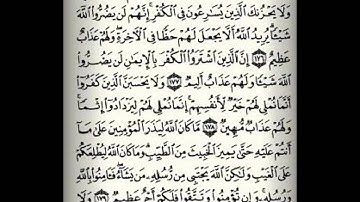 وَلَا يَحْزُنكَ الَّذِينَ يُسَارِعُونَ فِي الْكُفْرِ ۚ إِنَّهُمْ لَن يَضُرُّوا اللَّهَ
شَيْئًا ۗ يُرِيدُ اللَّهُ أَلَّا يَجْعَلَ لَهُمْ حَظًّا فِي الْآخِرَةِ ۖ وَلَهُمْ عَذَابٌ
عَظِيمٌ ﴿١٧٦﴾ إِنَّ الَّذِينَ اشْتَرَوُا الْكُفْرَ بِالْإِيمَانِ لَن يَضُرُّوا
اللَّهَ شَيْئًا وَلَهُمْ عَذَابٌ أَلِيمٌ ﴿١٧٧﴾ وَلَا يَحْسَبَنَّ الَّذِينَ كَفَرُوا
أَنَّمَا نُمْلِي لَهُمْ خَيْرٌ لِّأَنفُسِهِمْ ۚ إِنَّمَا نُمْلِي لَهُمْ لِيَزْدَادُوا إِثْمًا ۚ
وَلَهُمْ عَذَابٌ مُّهِينٌ ﴿١٧٨﴾ مَّا كَانَ اللَّهُ لِيَذَرَ الْمُؤْمِنِينَ عَلَىٰ مَا
أَنتُمْ عَلَيْهِ حَتَّىٰ يَمِيزَ الْخَبِيثَ مِنَ الطَّيِّبِ ۗ وَمَا كَانَ اللَّهُ لِيُطْلِعَكُمْ
عَلَى الْغَيْبِ وَلَٰكِنَّ اللَّهَ يَجْتَبِي مِن رُّسُلِهِ مَن يَشَاءُ ۖ فَآمِنُوا بِاللَّهِ
وَرُسُلِهِ ۚ وَإِن تُؤْمِنُوا وَتَتَّقُوا فَلَكُمْ أَجْرٌ عَظِيمٌ ﴿١٧٩﴾ وَلَا